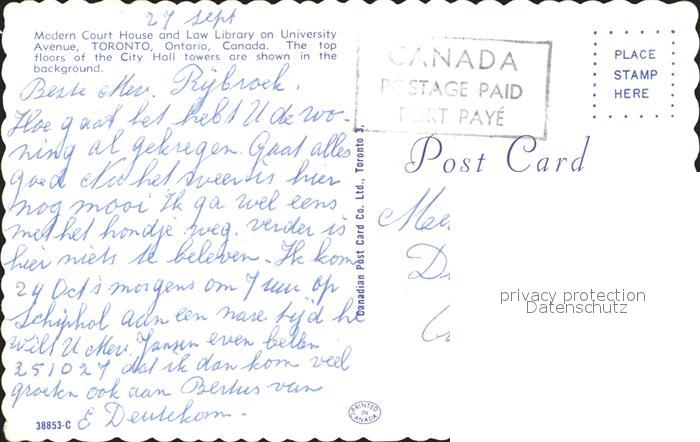 27 sept
Modern Court House and Law Library on University
Avenue, TORONTO, Ontario, Canada. The top
floors of the City Hall towers are shown in the
background.
Beste Mev. Rijbroek.
Hoe gaat het hebt U de wo-
ning al gekregen. Gaat alles
goed Nu het weer is hier
nog mooi Ik ga wel eens
met het hondje weg. verder is
hier niets te beleven. Ik kom
24 Oct s'morgens om 7 uur op
Schiphol aan een nare tijd hé
Wilt U Mev. Jansen even bellen
251027 dat ik dan kom veel
groeten ook aan Bertus van
E Deutekom.
38853-C
PRINTED IN CANADA
Canadian Post Card Co. Ltd., Toronto 3,
CANADA
POSTAGE PAID
PORT PAYÉ
PLACE
STAMP
HERE
Post Card
privacy protection
Datenschutz